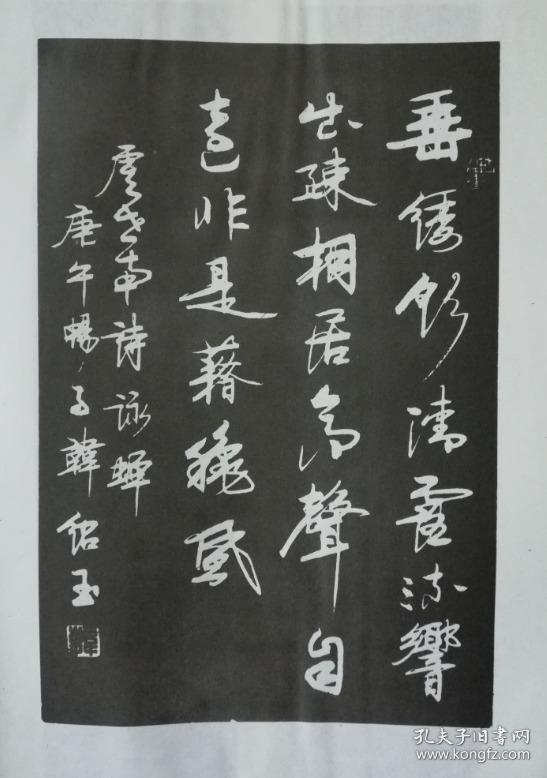 垂緌飲清露流響
出疎桐居高聲自
遠非是藉穐風
虞世南詩詠蟬
庚午暢月韓紹玉
孔夫子旧书网
www.kongfz.com